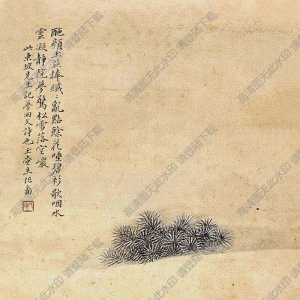 酡顏玉盌捧纖〻亂點餘花唾碧衫歌咽水
雲凝靜院夢驚松雪落空巖
此東坡先生記夢回文詩也